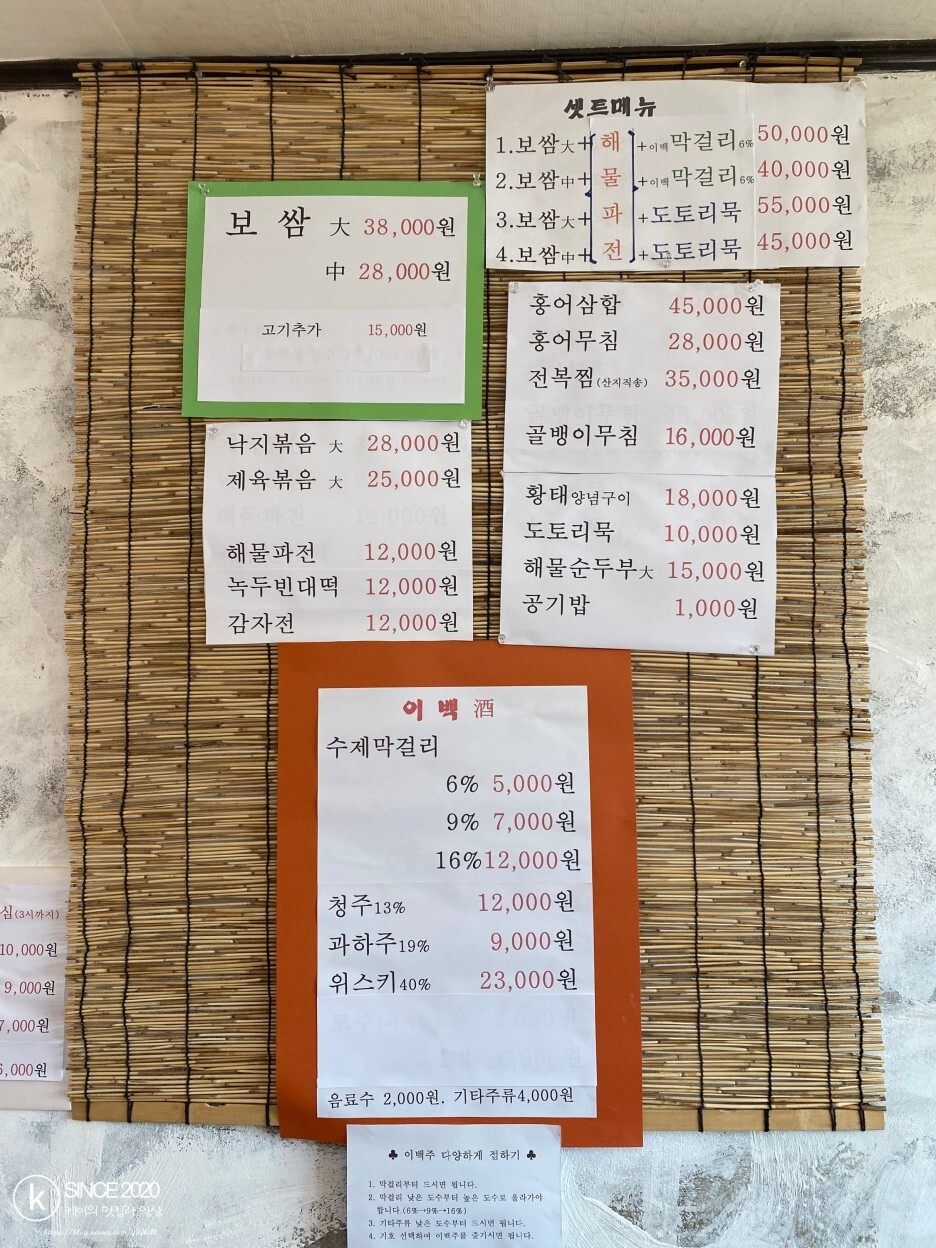 셋트메뉴
1.보쌈大+ 해 +이백막걸리6% 50,000원
2.보쌈中+ 물 +이백막걸리6% 40,000원
3.보쌈大+ 파 +도토리묵 55,000원
4.보쌈中+ 전 +도토리묵 45,000원
보 쌈 大 38,000원
中 28,000원
고기추가 15,000원
홍어삼합 45,000원
홍어무침 28,000원
전복찜(산지직송) 35,000원
골뱅이무침 16,000원
낙지볶음 大 28,000원
제육볶음 大 25,000원
해물파전 12,000원
녹두빈대떡 12,000원
감자전 12,000원
황태양념구이 18,000원
도토리묵 10,000원
해물순두부大 15,000원
공기밥 1,000원
이백 酒
수제막걸리
6% 5,000원
9% 7,000원
16% 12,000원
청주13% 12,000원
과하주19% 9,000원
위스키40% 23,000원
음료수 2,000원. 기타주류4,000원
심(3시까지)
10,000원
9,000원
7,000원
5,000원
♣ 이백주 다양하게 접하기 ♣
1. 막걸리부터 드시면 됩니다.
2. 막걸리 낮은 도수부터 높은 도수로 올라가야
합니다.(6%→9%→16%)
3. 기타주류 낮은 도수부터 드시면 됩니다.
4. 기호 선택하여 이백주를 즐기시면 됩니다.
k SINCE 2020